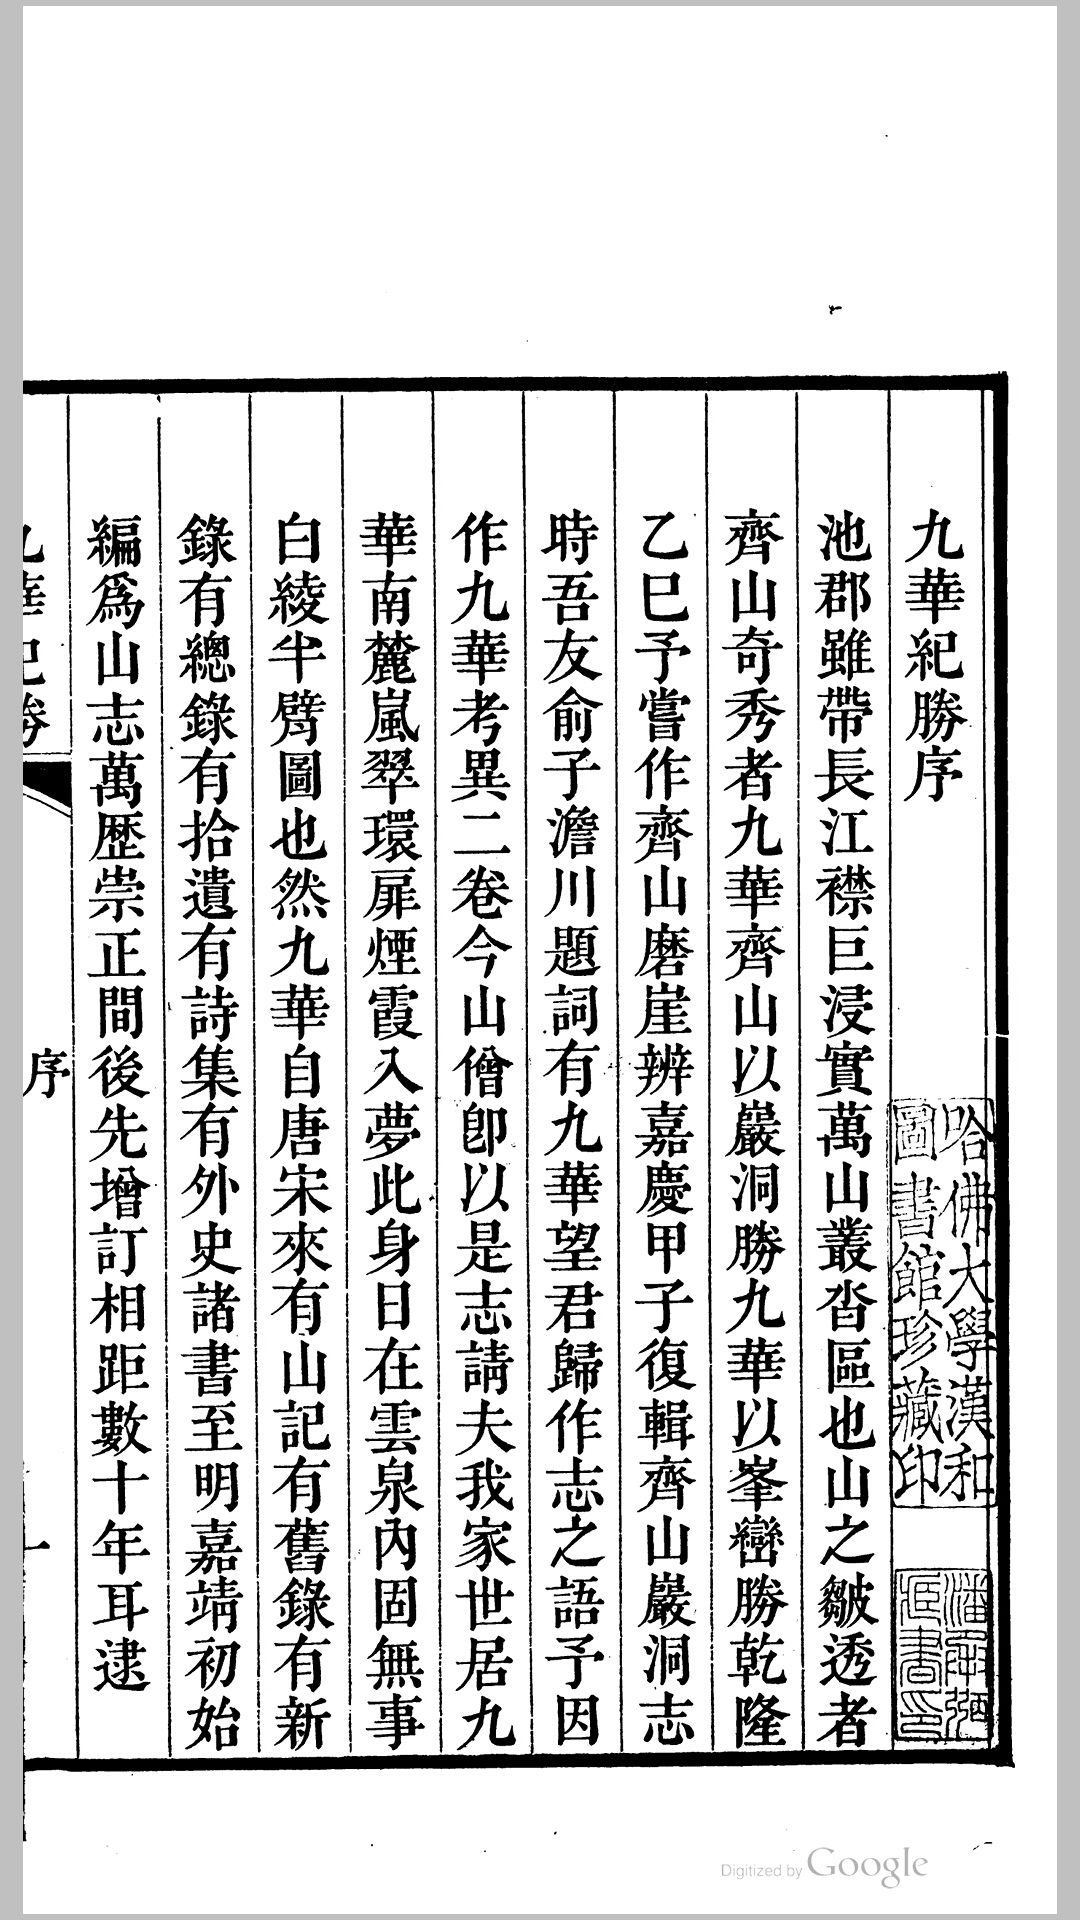 九華紀勝序
池郡雖帶長江襟巨浸實萬山叢沓區也山之皺透者
齊山奇秀者九華齊山以巖洞勝九華以峯巒勝乾隆
乙巳予嘗作齊山磨崖辨嘉慶甲子復輯齊山巖洞志
時吾友俞子澹川題詞有九華望君歸作志之語予因
作九華考異二卷今山僧卽以是志請夫我家世居九
華南麓嵐翠環扉煙霞入夢此身日在雲泉內固無事
白綾半臂圖也然九華自唐宋來有山記有舊錄有新
錄有總錄有拾遺有詩集有外史諸書至明嘉靖初始
編爲山志萬歷崇正間後先增訂相距數十年耳逮
九華紀勝
序
一
哈佛大學漢和
圖書館珍藏印
Digitized by Google